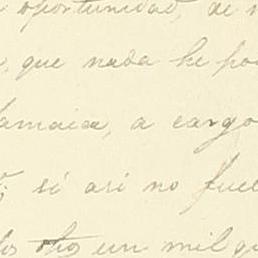 oportunidad, de
, que nada he po
amaica, a cargo
; si asi no fue
los otros un mil qu